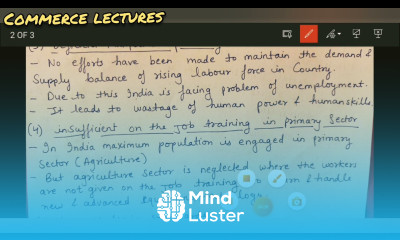 COMMERCE LECTURES
2 OF 3
- No efforts have been made to maintain the demand &
Supply balance of rising labour force in Country.
- Due to this India is facing problem of unemployment.
- It leads to wastage of human power & human skills
(4) insufficient on the job training in primary Sector
- In India maximum population is engaged in primary
Sector (Agriculture)
- But agriculture sector is neglected where the workers
are not given on the job training to & handle
new & advanced
Mind
Luster